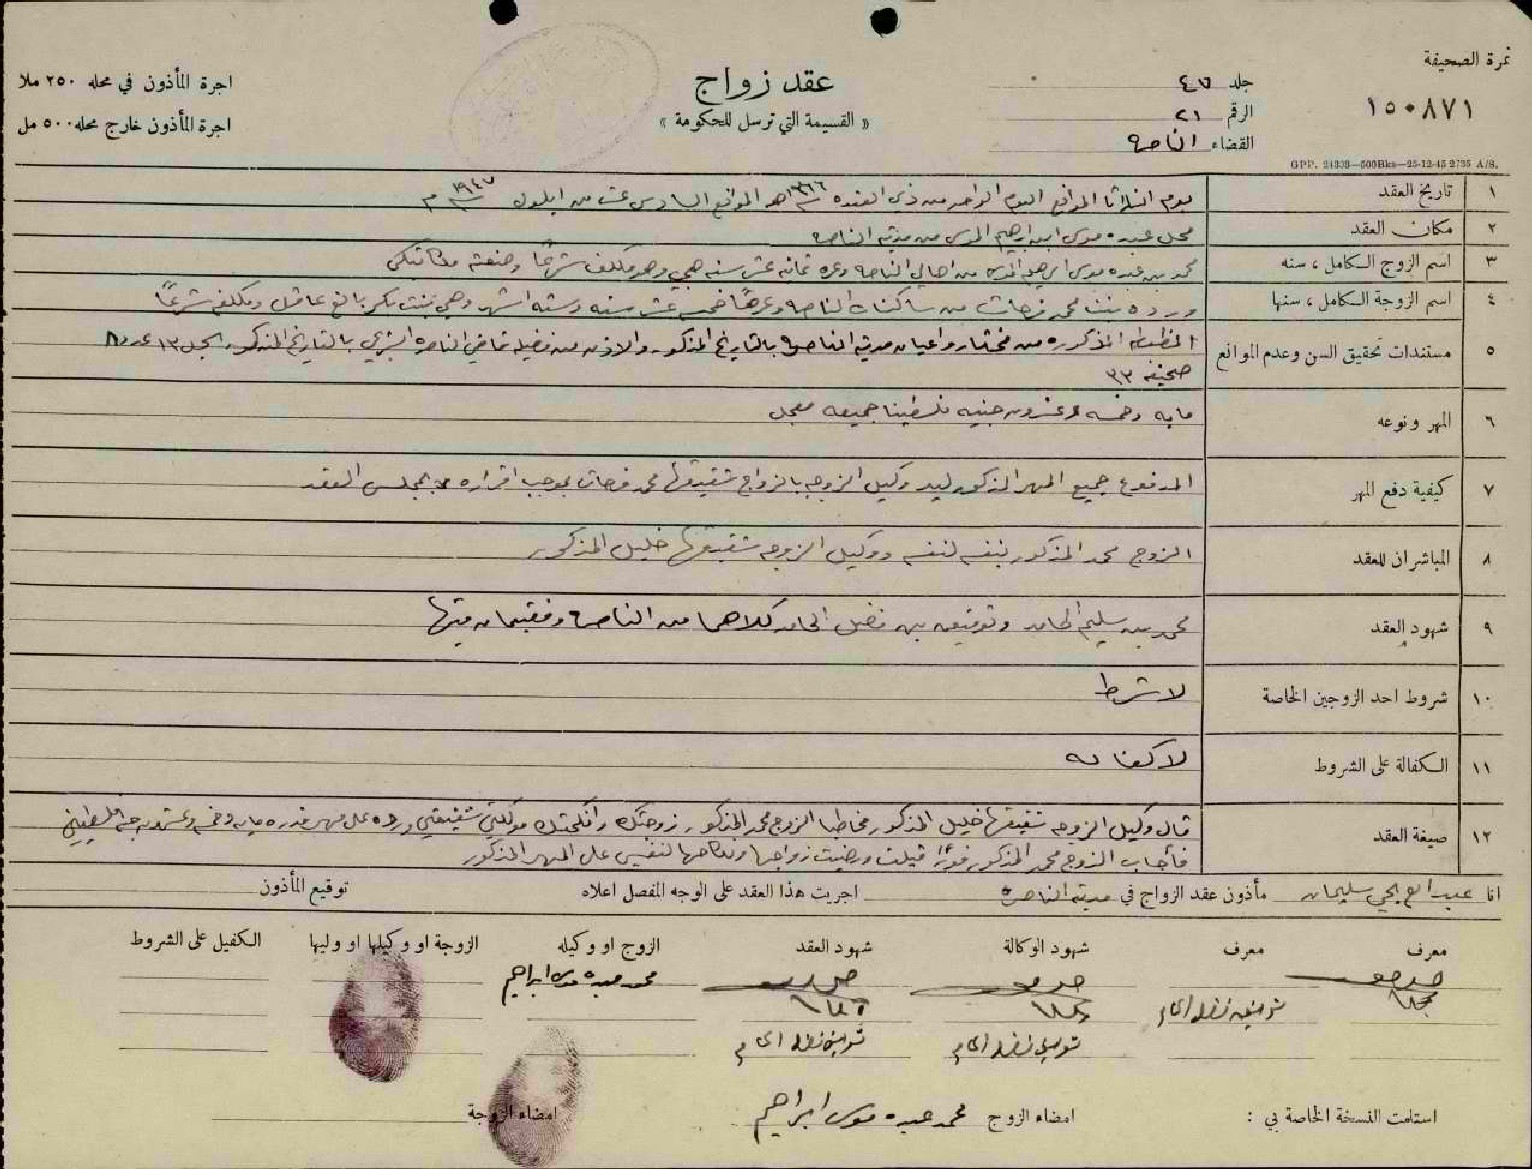 نمرة الصحيفة
١٥٠٨٧١
جلد ٤٧
الرقم ٢١
القضاء الناصره
عقد زواج
« القسيمة التي ترسل للحكومة »
اجرة المأذون في محله ٢٥٠ ملا
اجرة المأذون خارج محله ٥٠٠ مل
GPP. 24333—500Bks—25-12-45 2735 A/S.
١ تاريخ العقد يوم الثلاثا الموافق اليوم الواحد من ذي القعده ١٣٦٦ هـ الموافق السادس عشر من ايلول ١٩٤٧ م
٢ مكان العقد محل عبده موسى ابراهيم من مدينة الناصره
٣ اسم الزوج الكامل ، سنه محمد بن عبده موسى ابراهيم من اهالي الناصه وعمره ثمانيه عشر سنه وهو مكلف شرعًا وصنعته
٤ اسم الزوجة الكامل ، سنها ورده بنت محمد فرحات من ساكنات الناصره وعمرها خمسة عشر سنه وسته اشهر وهي بنت بكر بالغ عاقل ومكلفه شرعًا
٥ مستندات تحقيق السن وعدم الموانع المذكوره من مختار واعيان مدينة الناصره بالتاريخ المذكور والاذن من فضيلة قاضي الناصره بالتاريخ المذكور ١٣ عدد ٨
صحيفه ٣٣
٦ المهر ونوعه مايه وخمسه وعشرون جنيه فلسطينا جميعه معجل
٧ كيفية دفع المهر المدفوع جميع المهر المذكور ليد وكيل الزوجه بالزواج شقيقها محمد فرحات بموجب اقراره بمجلس العقد
٨ المباشران للعقد الزوج محمد المذكور بنفسه لنفسه ووكيل الزوجه شقيقها خليل المذكور
٩ شهود العقد محمد بن سليم الحامد وتوفيق بن فضل الحامد كلاهما من الناصره
١٠ شروط احد الزوجين الخاصة لا شرط
١١ الكفالة على الشروط لا كفاله
١٢ صيغة العقد قال وكيل الزوجه شقيقها خليل المذكور مخاطبا الزوج محمد المذكور زوجتك وانكحتك موكلتي شقيقتي ورده على مهر قدره مايه وخمسه وعشرون جنيه فلسطيني
فأجاب الزوج محمد المذكور فورًا قبلت ورضيت زواجها ونكاحها لنفسي على المهر المذكور
انا سليمان مأذون عقد الزواج في مدينة الناصره اجريت هذا العقد على الوجه المفصل اعلاه توقيع المأذون
معرف معرف شهود الوكالة شهود العقد الزوج او وكيله الزوجة او وكيلها او وليها الكفيل على الشروط
محمد عبده موسى ابراهيم
استلمت النسخة الخاصة بي : امضاء الزوج محمد عبده موسى ابراهيم امضاء الزوجة